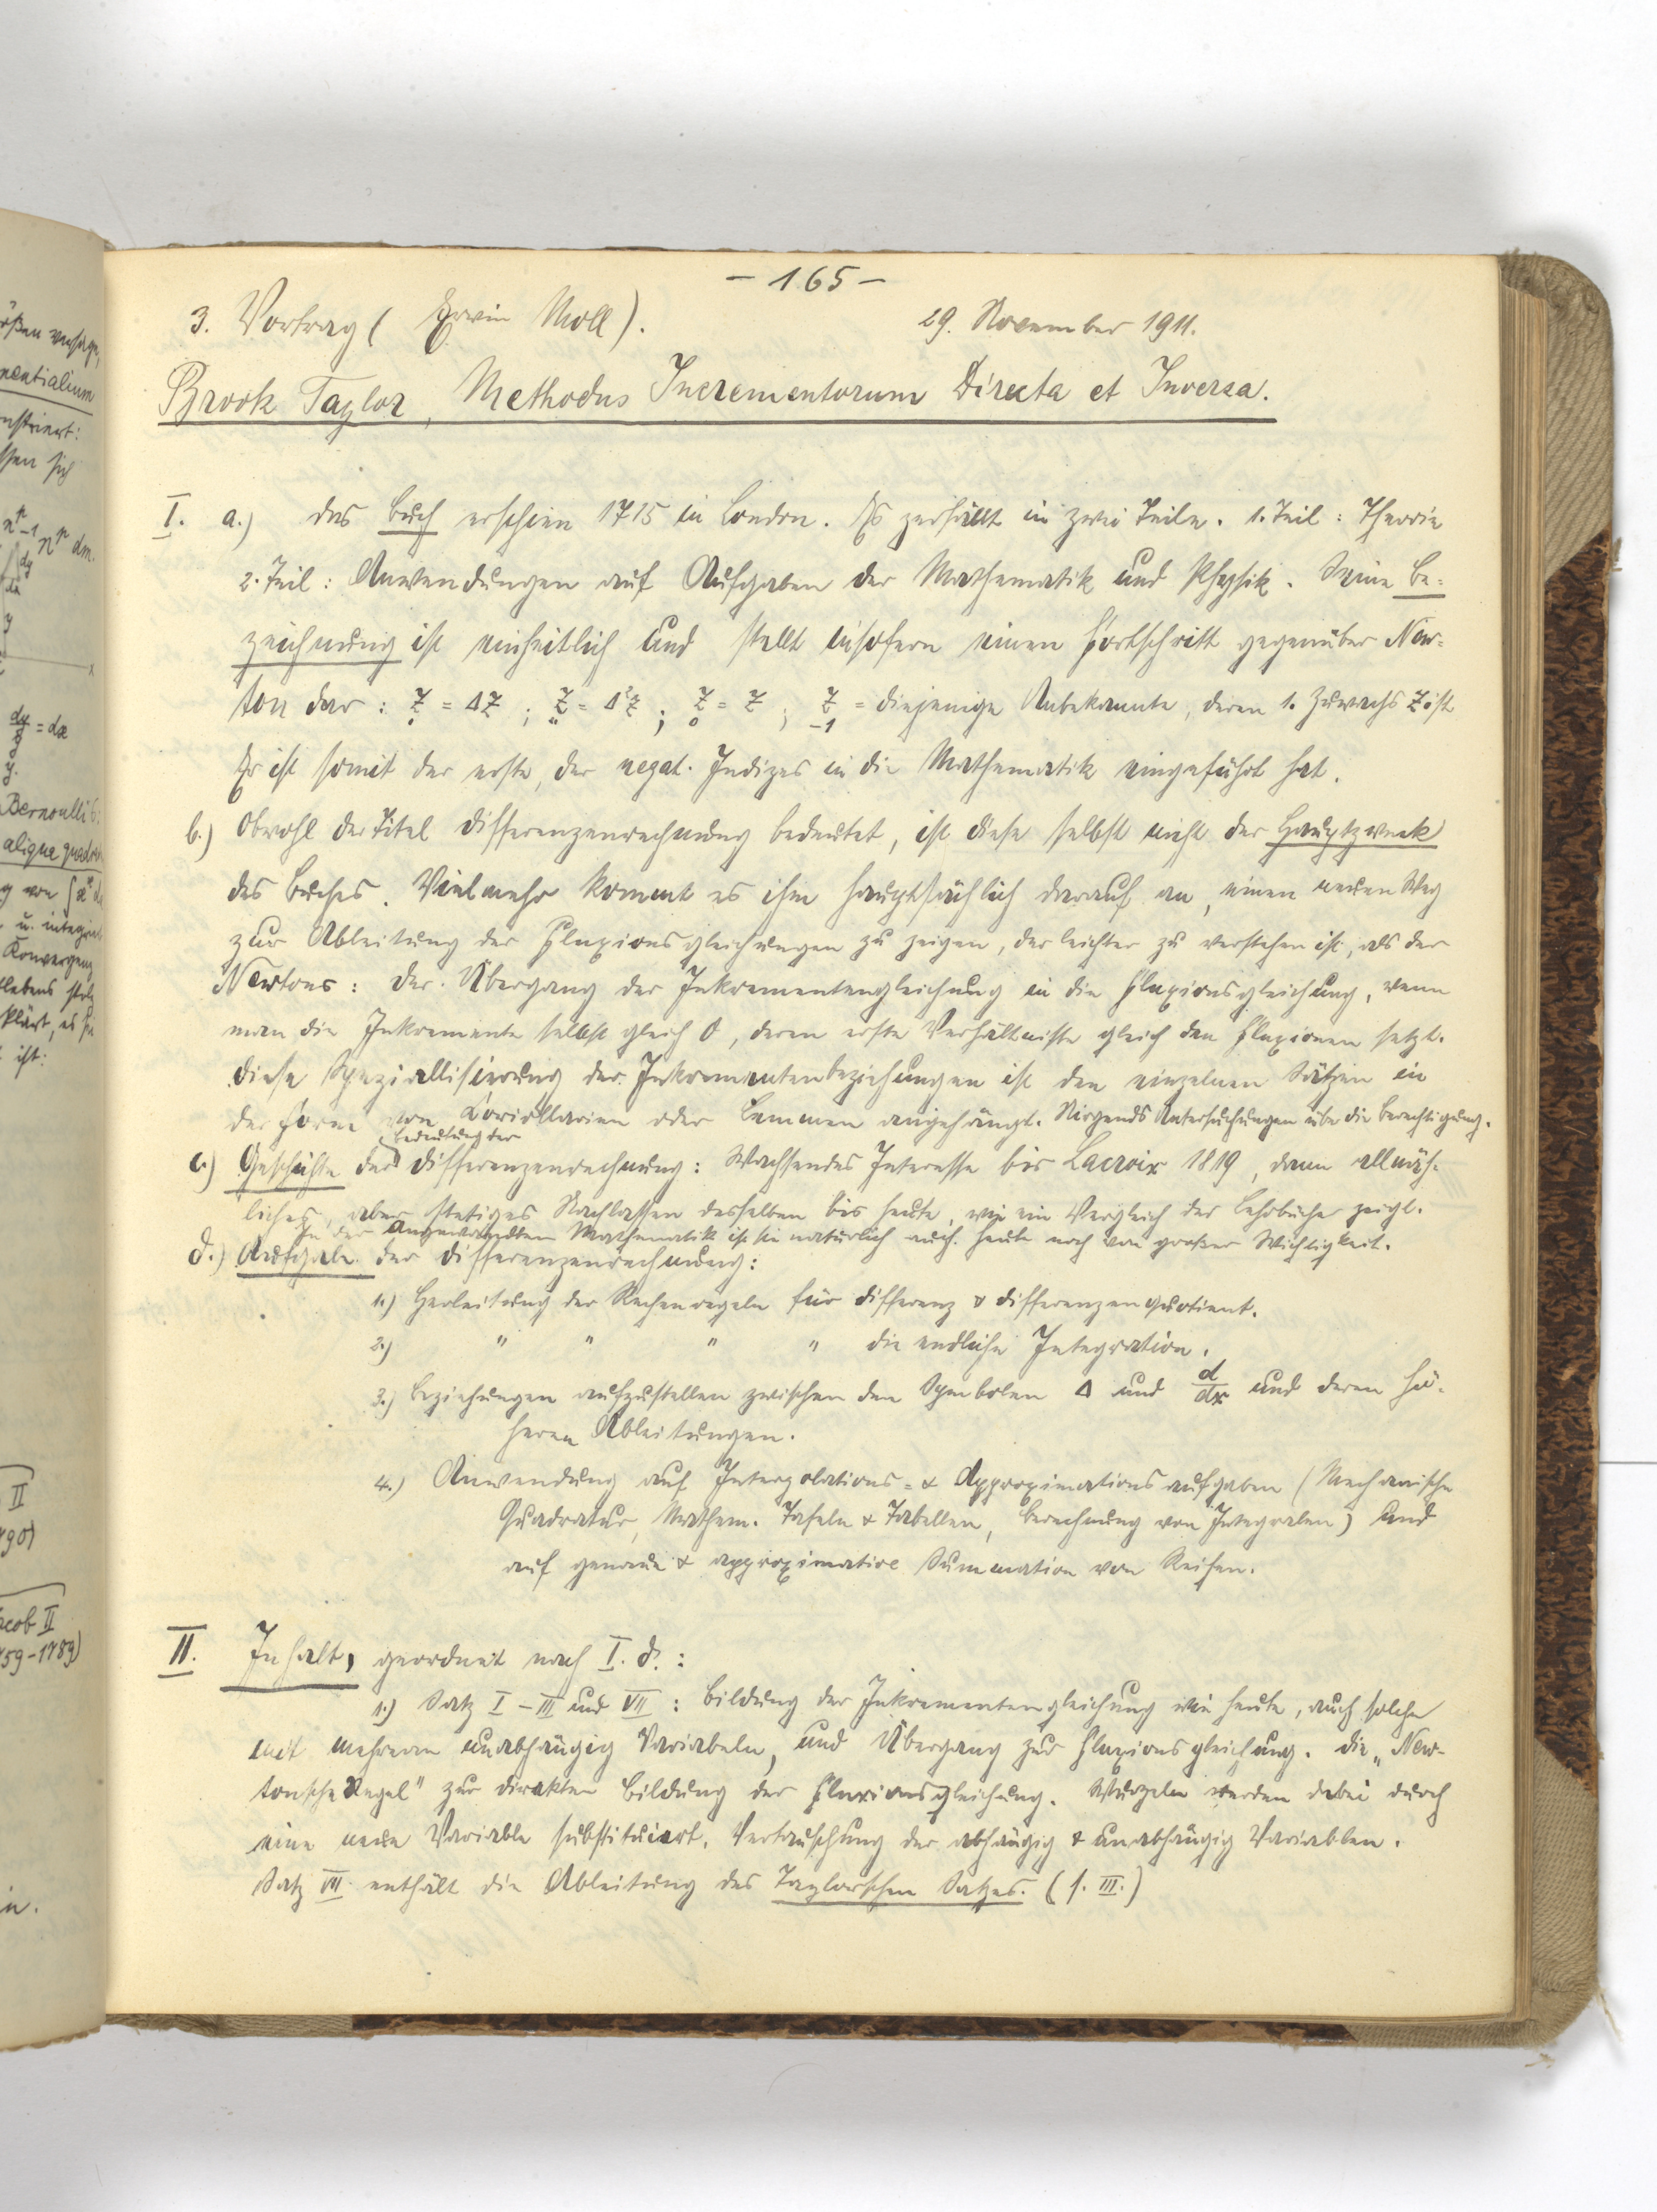 ößen versagen,
nentialium
nstriert:
ssen sich
dy/y = dx
Bernoulli
aliqua quadra
Konvergenz
klärt, es
ist:
II
acob II
59-1789)
in.
- 165 -
3. Vortrag (Erwin Moll). 29. November 1911.
Brook Taylor, Methodus Incrementorum Directa et Inversa.
I. a.) Das Buch erschien 1715 in London. Es zerfällt in zwei Teile. 1. Teil: Theorie
2. Teil: Anwendungen auf Aufgaben der Mathematik und Physik. Seine Be-
zeichnung ist einheitlich und stellt insofern einen Fortschritt gegenüber New-
ton dar: z. = Δz ; z.. = Δ²z ; z₀ = z ; z₋₁ = diejenige Unbekannte, deren 1. Zuwachs z ist
Er ist somit der erste, der negat. Indizes in die Mathematik eingeführt hat.
b.) Obwohl der Titel Differenzenrechnung bedeutet, ist diese selbst nicht der Hauptzweck
des Buches. Vielmehr kommt es ihm hauptsächlich darauf an, einen neuen Weg
zur Ableitung der Fluxionsgleichungen zu zeigen, der leichter zu verstehen ist, als der
Newtons: Der Übergang der Inkrementengleichung in die Fluxionsgleichung, wenn
man die Inkremente selbst gleich 0, deren erste Verhältnisse gleich den Fluxionen setzt.
Diese Speziallisierung der Inkrementenbeziehungen ist den einzelnen Sätzen in
der Form von Koriollarien oder Lemmen angehängt. Nirgends Untersuchungen über die Berechtigung.
c.) Geschichte der Bedeutung der Differenzenrechnung: Wachsendes Interesse bis Lacroix 1819, dann allmäh-
liches, aber stetiges Nachlassen desselben bis heute, wie ein Vergleich der Lehrbücher zeigt.
In der Angewandten Mathematik ist sie natürlich auch heute noch von großer Wichtigkeit.
d.) Aufgabe der Differenzenrechnung:
1.) Herleitung der Rechenregeln für Differenz & Differenzenquotient.
2.) " " " " die endliche Integration.
3.) Beziehungen aufzustellen zwischen den Symbolen Δ und d/dx und deren hö-
heren Ableitungen.
4.) Anwendung auf Interpolations- & Approximationsaufgaben (Mechanische
Quadratur, Mathem. Tafeln & Tabellen, Berechnung von Integralen) und
auf genaue & approximative Summation von Reihen.
II. Inhalt, geordnet nach I. d.:
1.) Satz I – III und VII: Bildung der Inkrementengleichung wie heute, auch solche
mit mehreren unabhängig Variabeln, und Übergang zur Fluxionsgleichung. Die „New-
tonsche Regel" zur direkten Bildung der Fluxionsgleichung. Wurzeln werden dabei durch
eine neue Variable substituiert. Vertauschung der abhängig & unabhängig Variabeln.
Satz VII enthält die Ableitung des Taylorschen Satzes. (s. III.)